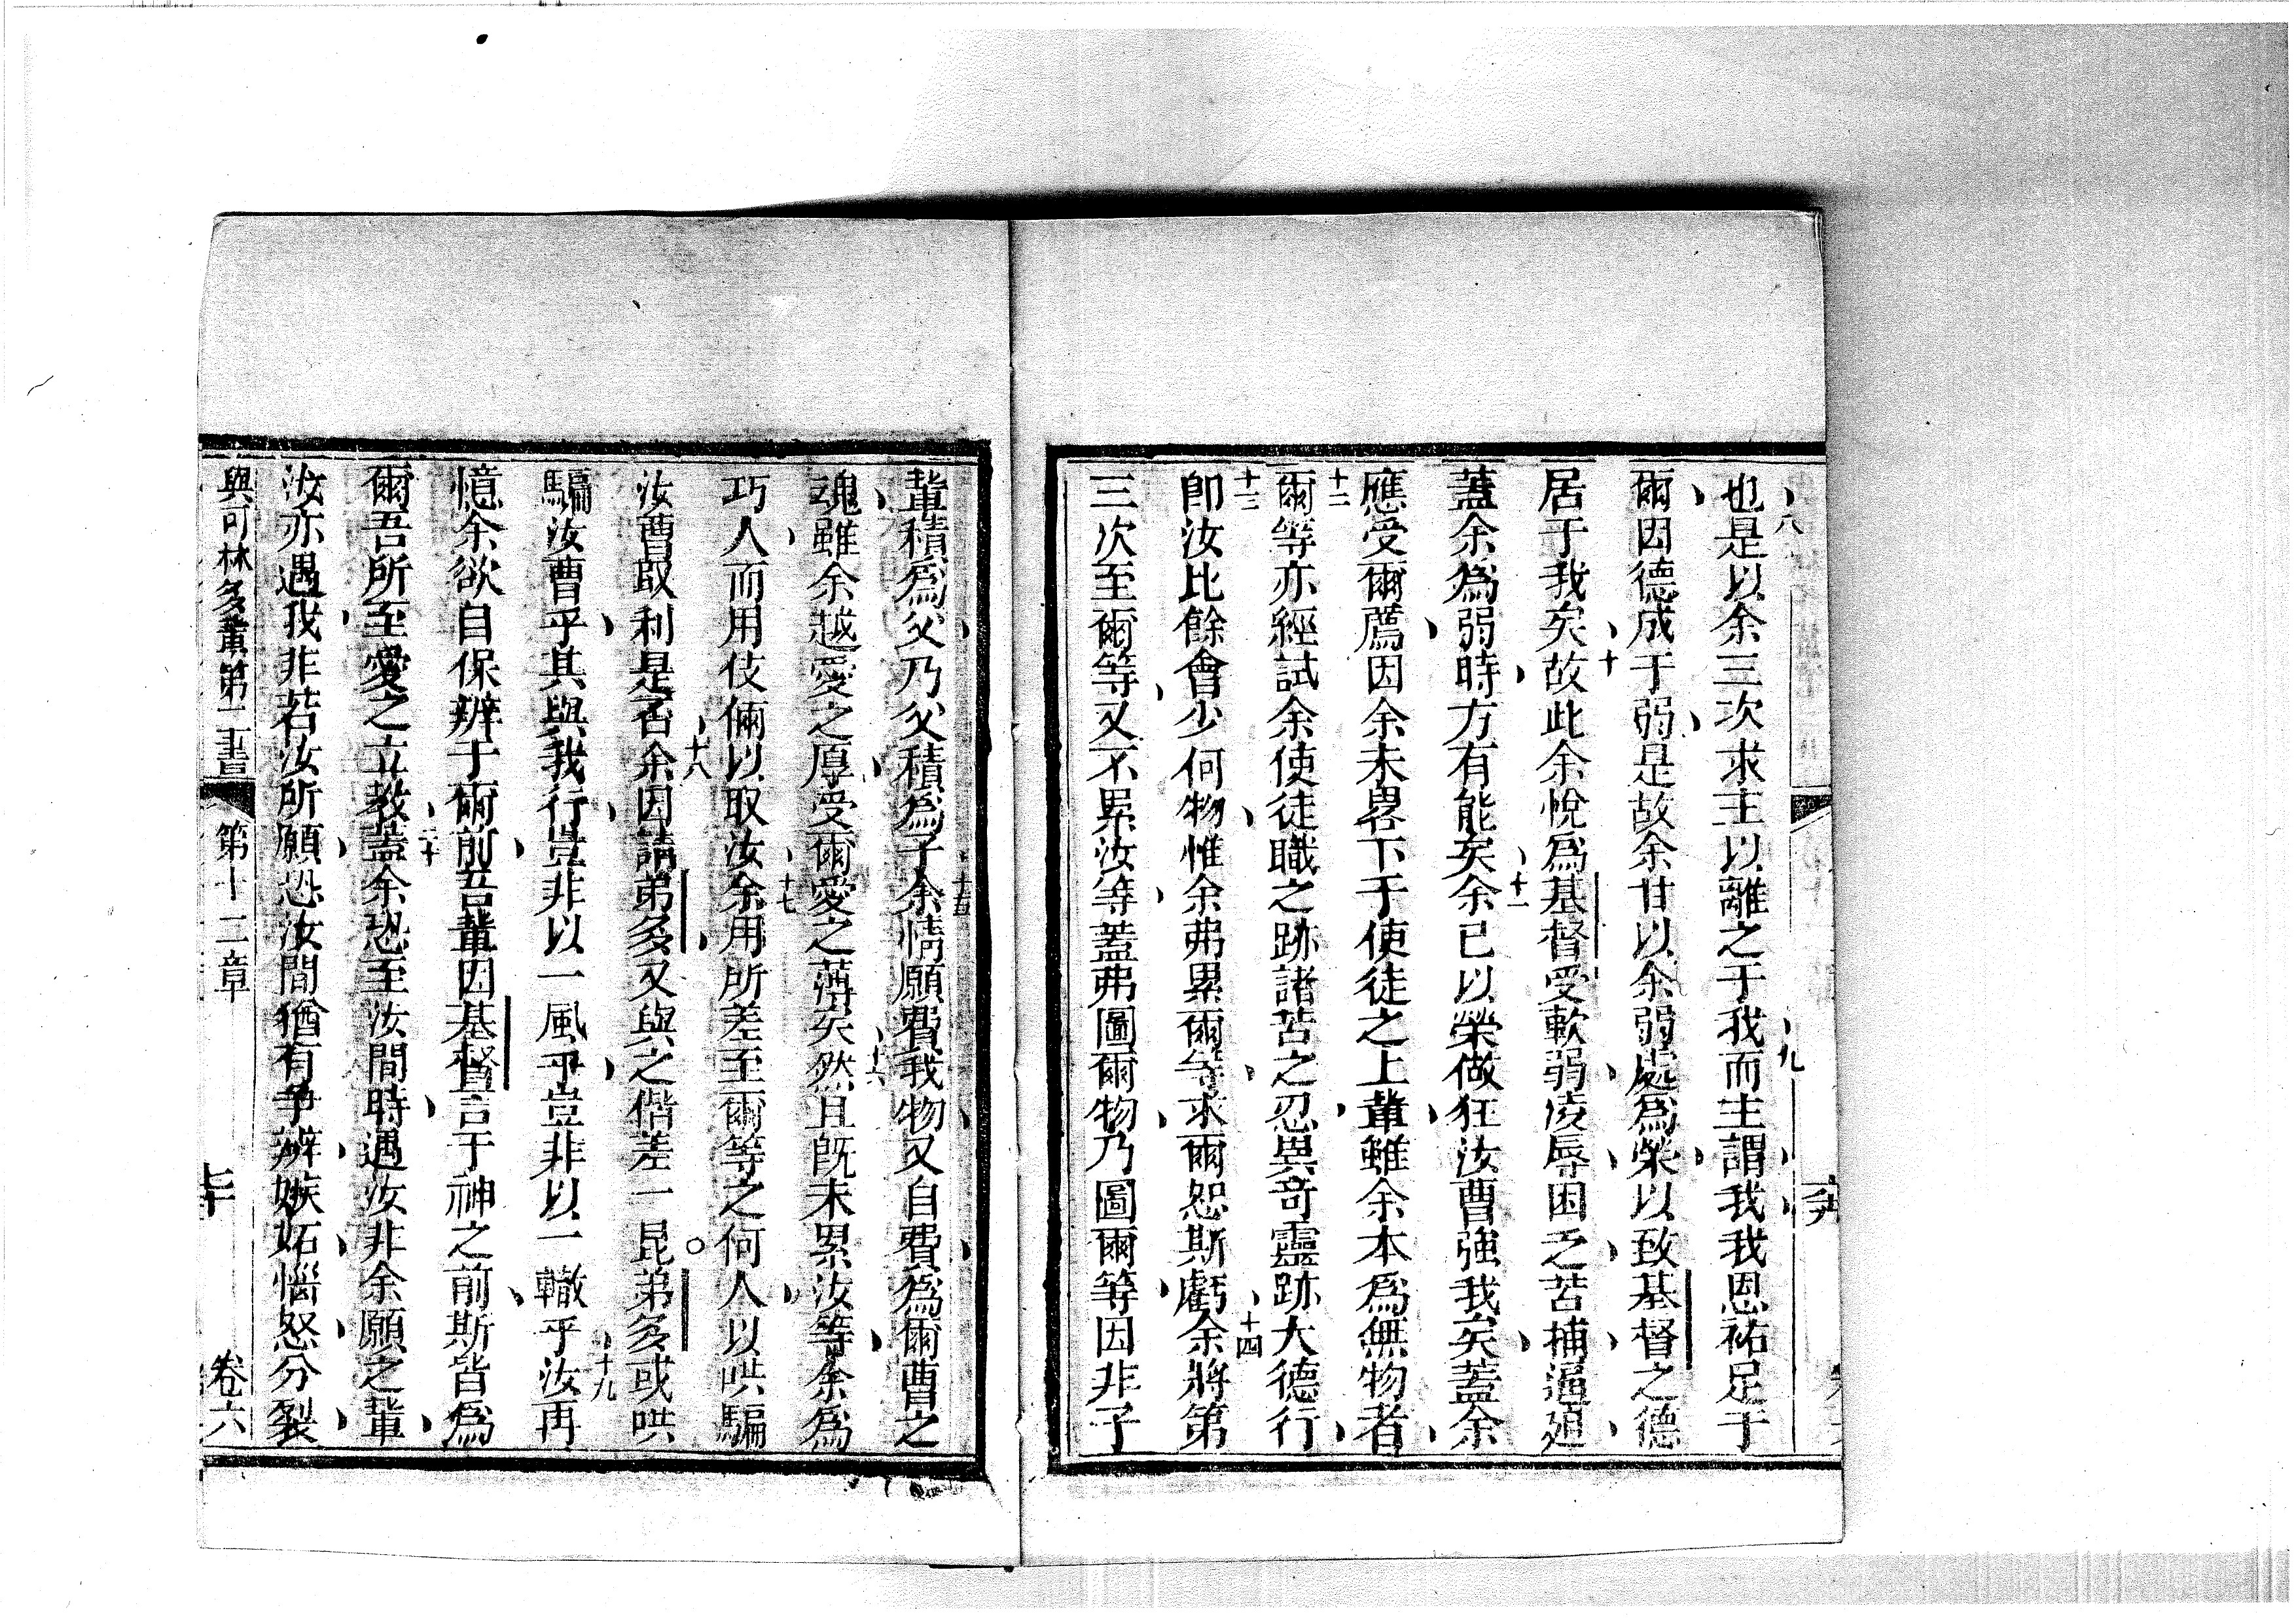 八
也是以余三次求主以離之于我而主謂我我恩祐足于
九
爾因德成于弱是故余甘以余弱處爲榮以致基督之德
居于我矣故此余悅爲基督受軟弱凌辱困乏苦捕逼廹
十
蓋余爲弱時方有能矣余已以榮做狂汝曹強我矣蓋余
十一
應受爾薦因余未畧下于使徒之上輩雖余本爲無物者
十二
爾等亦經試余使徒職之跡諸苦之忍異奇靈跡大德行
十三
卽汝比餘會少何物惟余弗累爾等求爾恕斯虧余將第
十四
三次至爾等又不累汝等蓋弗圖爾物乃圖爾等因非子
輩積爲父乃父積爲子余情願費我物又自費爲爾曹之
十五
魂雖余越愛之厚受爾愛之薄矣然且既未累汝等余爲
十六
巧人而用伎倆以取汝余用所差至爾等之何人以哄騙
十七
汝曹取利是否余因請弟多又與之偕差一昆弟多或哄
十八
騙汝曹乎其與我行豈非以一風乎豈非以一轍乎汝再
十九
憶余欲自保辨于爾前吾輩因基督言于神之前斯皆爲
爾吾所至愛之立教蓋余恐至汝間時遇汝非余願之輩
二十
汝亦遇我非若汝所願恐汝間猶有爭辨嫉妬惱怒分裂
與可林多輩第二書 第十二章 七十 卷六